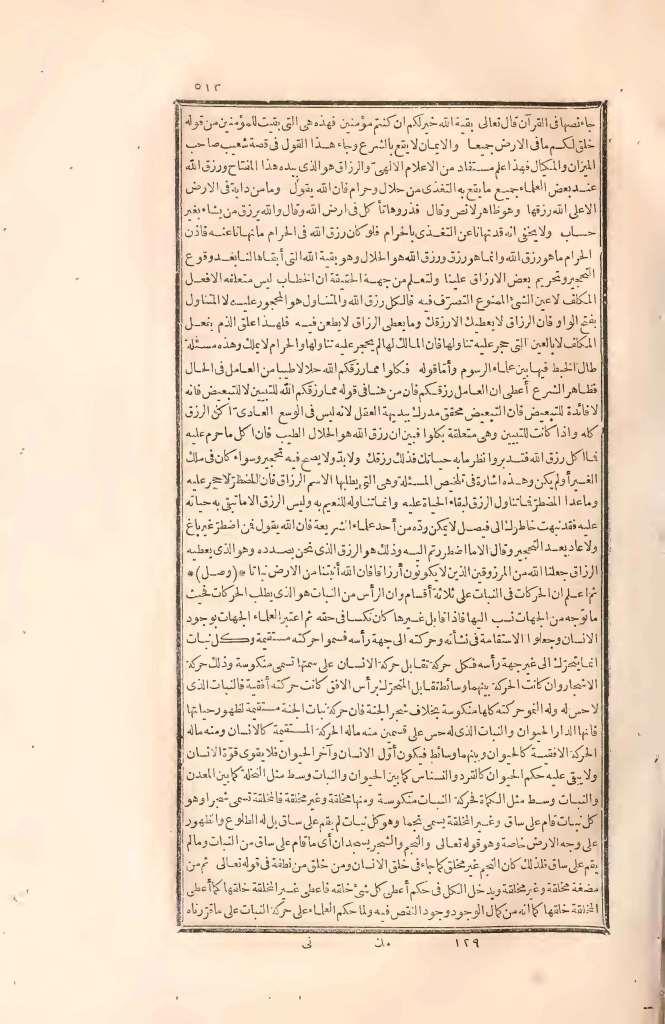 ٥١٣
جاء نصها فى القرآن قال تعالى بقية الله خير لكم ان كنتم مؤمنين فهذه هى التى بقيت للمؤمنين من قوله
خلق لكم ما فى الارض جميعا والايمان لا يقع بالشرع وجاء هذا القول فى قصة شعيب صاحب
الميزان والمكيال فهذا علم مستفاد من الاعلام الالهى والرزاق هو الذى بيده هذا المفتاح ورزق الله
عند بعض العلماء جميع ما يقع به التغذى من حلال وحرام فان الله يقول وما من دابة فى الارض
الا على الله رزقها وهو ظاهر لا نص وقال فذروها تأكل فى ارض الله وقال والله يرزق من يشاء بغير
حساب ولا يخفى انه قد نهانا عن التغذى بالحرام فلو كان رزق الله فى الحرام ما نهانا عنه فاذن
الحرام ما هو رزق الله وانما هو رزق ورزق الله هو الحلال وهو بقية الله التى أبقاها لنا بعد وقوع
التحجير وتحريم بعض الارزاق علينا ولتعلم من جهة الحقيقة ان الخطاب ليس متعلقه الا فعل
المكلف لا عين الشئ الممنوع التصرف فيه فالكل رزق الله والمتناول هو المحجور عليه لا المتناول
بفتح الواو فان الرزاق لا يعطيك الا رزقك وما يعطى الرزاق لا يطعن فيه فلهذا علق الذم بفعل
المكلف لا بالعين التى حجر عليه تناولها فان المالك لها لم يحجر عليه تناولها والحرام لا يملك وهذه مسئلة
طال الخبط فيها بين علماء الرسوم وأما قوله فكلوا مما رزقكم الله حلالا طيبا من العامل فى الحال
فظاهر الشرع أعطى ان العامل رزقكم فان من هنا فى قوله مما رزقكم الله للتبيين لا للتبعيض فانه
لا فائدة للتبعيض فان التبعيض محقق مدرك ببديهة العقل لانه ليس فى الوسع العادى أكل الرزق
كله واذا كانت للتبيين وهى متعلقة بكلوا فبين ان رزق الله هو الحلال الطيب فان اكل ما حرم عليه
فما اكل رزق الله فتدبروا نظر ما به حياتك فذلك رزقك ولا بد ولا يصح فيه تحجير وسواء كان فى ملك
الغير أو لم يكن وهذه اشارة فى تلخيص المسئلة وهى التى يطلبها الاسم الرزاق فان المضطر لا حجر عليه
وما عدا المضطر فما تناول الرزق لبقاء الحياة عليه وانما تناوله للنعيم به وليس الرزق الا ما تبقى به حياته
عليه فقد نبهت خاطرك الى فيصل لا يمكن رده من أحد علماء الشريعة فان الله يقول فمن اضطر غير باغ
ولا عاد بعد التحجير وقال الا ما اضطررتم اليه وذلك هو الرزق الذى نحن بصدده وهو الذى يعطيه
الرزاق جعلنا الله من المرزوقين الذين لا يكونون أرزاقا فان الله أنبتنا من الارض نباتا *(وصل)*
ثم اعلم ان الحركات فى النبات على ثلاثة أقسام وان الرأس من النبات هو الذى يطلب الحركات فحيث
ما توجه من الجهات نسب اليها فاذا قابل غيرها كان نكسا فى حقه ثم اعتبر العلماء الجهات بوجود
الانسان وجعلوا الاستقامة فى نشأته وحركته الى جهة رأسه فسموا حركته مستقيمة وكل نبات
انما يتحرك الى غير جهة رأسه فكل حركة تقابل حركة الانسان على سمتها تسمى منكوسة وذلك حركة
الاشجار وان كانت الحركة بينهما وسائط تقابل المتحرك برأس الافق كانت حركته أفقية فالنبات الذى
لا حس له وله النمو حركته كلها منكوسة بخلاف شجر الجنة فان حركة نبات الجنة مستقيمة لظهور حياتها
فانها الدار الحيوان والنبات الذى له حس على قسمين منه ما له الحركة المستقيمة كالانسان ومنه ما له
الحركة الافقية كالحيوان وبينهما وسائط فيكون أول الانسان وآخر الحيوان فلا يقوى قوة الانسان
ولا يبقى عليه حكم الحيوان كالقرد والنسناس كما بين الحيوان والنبات وسط مثل النخلة كما بين المعدن
والنبات وسط مثل الكماة فحركة النبات منكوسة ومنها مخلقة وغير مخلقة فالمخلقة تسمى شجرا وهو
كل نبات قام على ساق وغير المخلقة يسمى نجما وهو كل نبات لم يقم على ساق بل له الطلوع والظهور
على وجه الارض خاصة وهو قوله تعالى والنجم والشجر يسجدان أى ما قام على ساق من النبات وما لم
يقم على ساق فلذلك كان النجم غير مخلق كما جاء فى خلق الانسان ومن خلق من نطفة فى قوله تعالى ثم من
مضغة مخلقة وغير مخلقة ويدخل الكل فى حكم أعطى كل شئ خلقه فاعطى غير المخلقة خلقها كما أعطى
المخلقة خلقها كما انه من كمال الوجود وجود النقص فيه ولما حكم العلماء على حركة النبات على ما قررناه
١٢٩ مك نى